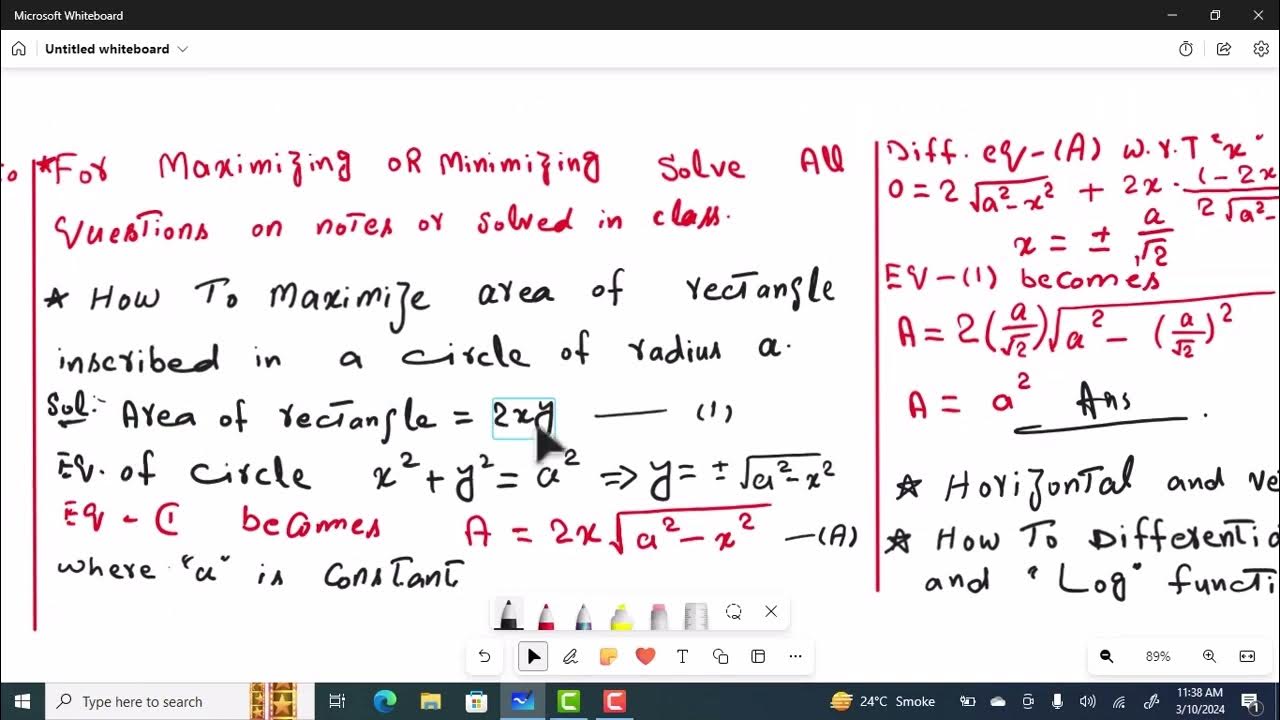 Microsoft Whiteboard
Untitled whiteboard
★ For Maximizing OR Minimizing Solve All
Questions on notes or solved in class.
★ How To Maximize area of rectangle
inscribed in a circle of radius a.
Sol:- Area of rectangle = 2xy —— (1)
Eq. of circle x² + y² = a² ⇒ y = ± √(a² - x²)
Eq - (1 becomes A = 2x √(a² - x²) —(A)
where "a" is constant
Diff. eq-(A) w.r.T "x"
0 = 2 √(a² - x²) + 2x · (-2x
2 √a² -
x = ± a/√2
Eq-(1) becomes
A = 2(a/√2) √(a² - (a/√2)²)
A = a² Ans.
★ Horizontal and ve
★ How To Differentia
and "Log" functi
89%
Type here to search
24°C Smoke
11:38 AM
3/10/2024